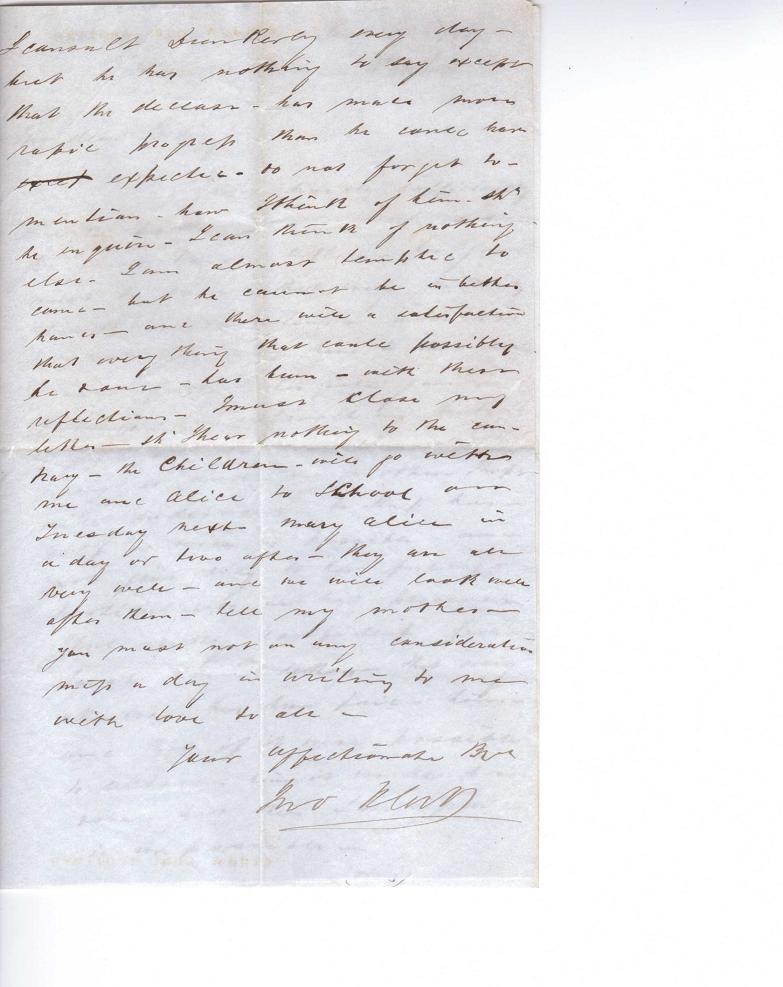 I consult Dean Kerby every day –
but he has nothing to say except
that the disease – has made more
rapid progress than he could have
expected – do not forget to –
mention – how I think of him – shd
he enquire – I can think of nothing
else – I am almost tempted to
come – but he cannot be in better
hands – and there will a satisfaction
that every thing that could possibly
be done – has been – with these
reflections – I must close my
letter – shd I hear nothing to the con-
trary – the Children – will go with
me and Alice to School on
Tuesday next mary alice in
a day or two after – they are all
very well – and we will look well
after them – tell my mother –
you must not on any consideration
miss a day in writing to me
with love to all –
Your affectionate Bro
Jno